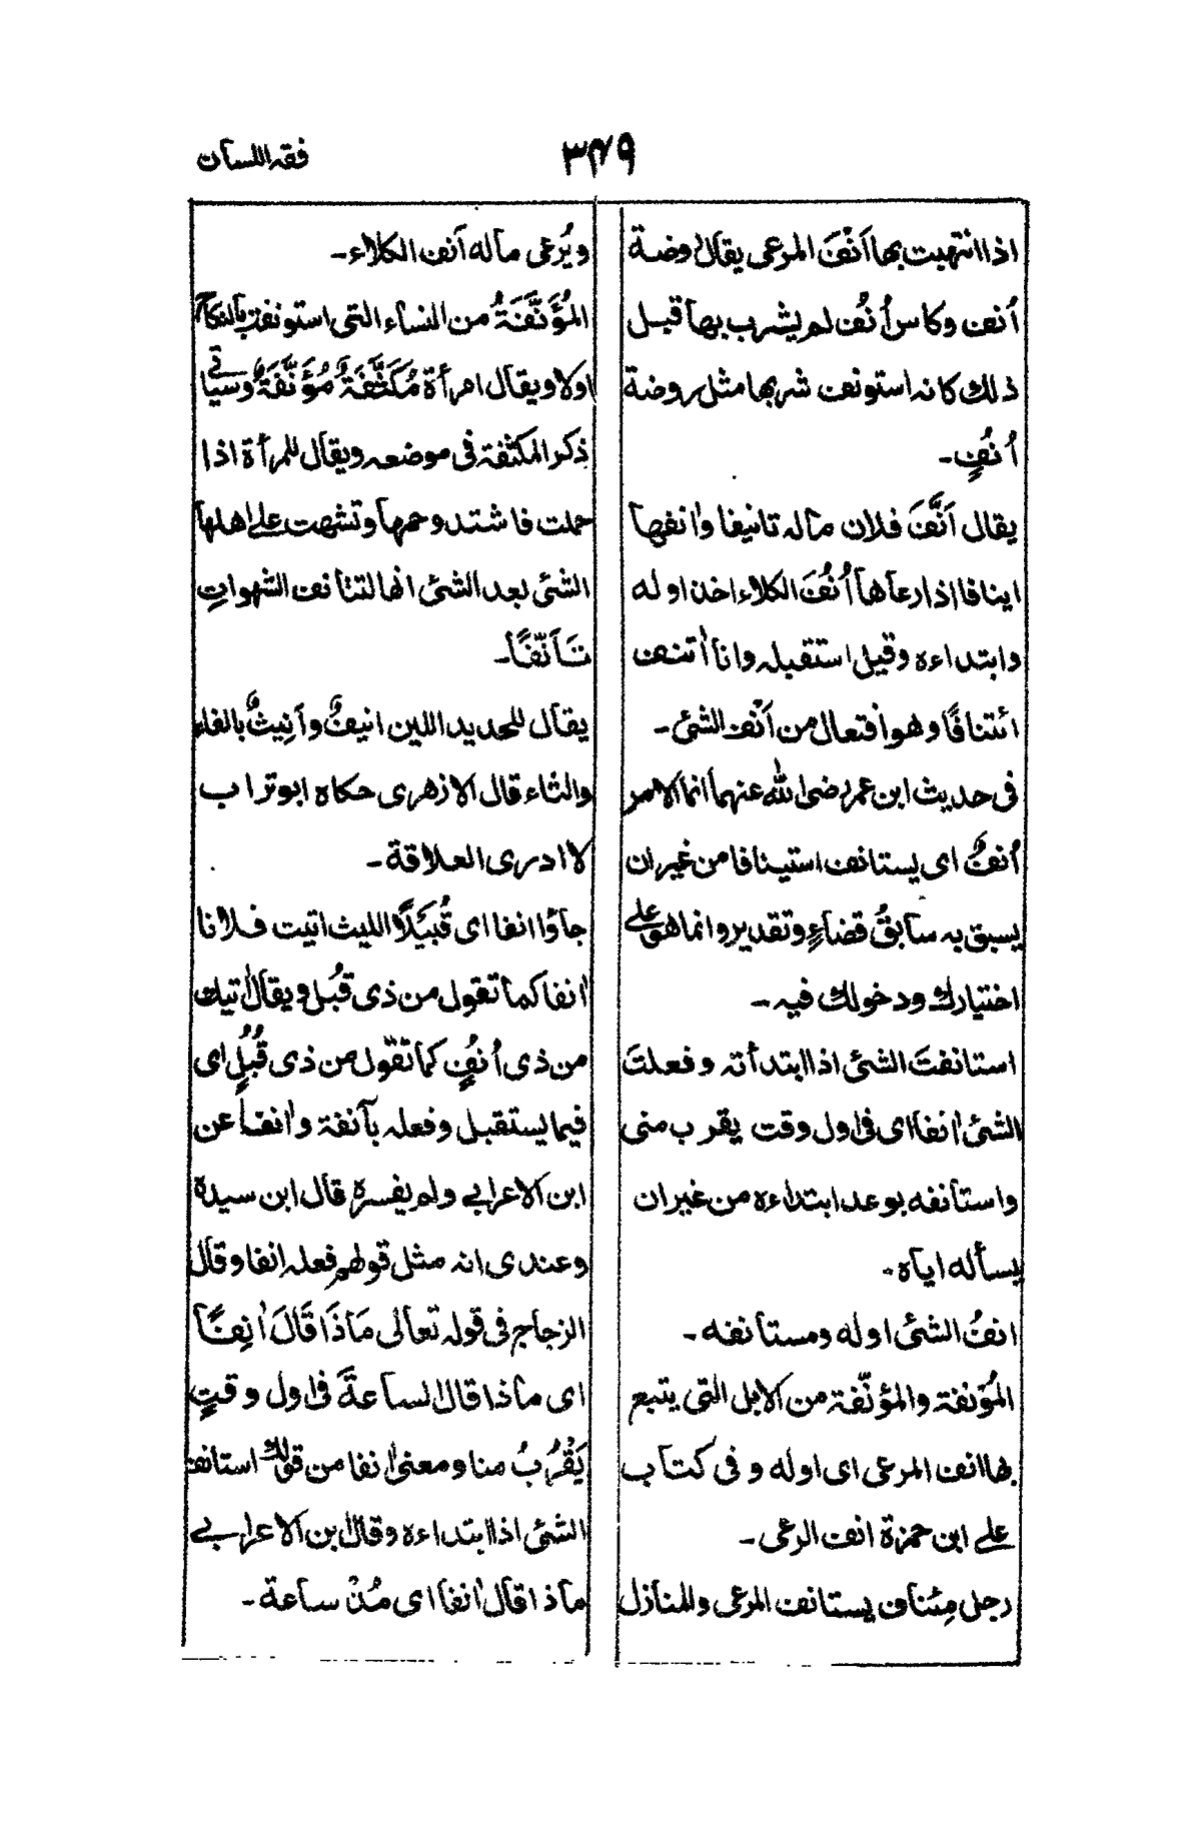 فقه اللسان
٣٤٩
اذا انتهيت بها اَنْفَ المرعى يقال روضة
اُنف وكاس اُنُف لم يشرب بها قبل
ذلك كانه استونف شربها مثل روضة
اُنُفٍ۔
يقال اَنَّفَ فلان ماله تانيفا وانفها
اينافا اذا رعاها اُنُفَ الكلاء اخذ اوله
وابتداءه وقيل استقبله وانا اٰتنف
ائتنافًا وهو افتعال من اَنْف الشئ۔
فى حديث ابن عمر رضى الله عنهما انما الامر
اُنفٌ اى يستانف استينافا من غير ان
يسبق به سابقُ قضاءٍ وتقدير وانما هو على
اختيارك ودخولك فيه۔
استانفتَ الشئ اذا ابتدأته وفعلتَ
الشئ اٰنفا اى فى اول وقت يقرب منى
واستانفه بوعد ابتداءه من غير ان
يسأله اياه۔
انفُ الشئ اوله ومستانفه۔
المُؤنفة والمؤنّفة من الابل التى يتبع
بها انف المرعى اى اوله وفى كتاب
على ابن حمزة انف الرعى۔
رجل مِئناف يستانف المرعى والمنازل
ويُرعى ماله اَنف الكلاء۔
المُؤَنَّفَةُ من النساء التى استونفت بالنكاح
اولا ويقال امرأة مُكَثَّفَةٌ مُؤَنَّفَةٌ وسياتى
ذكر المكثفة فى موضعه ويقال للمرأة اذا
حملت فاشتد وحمها وتشهت على اهلها
الشئ بعد الشئ انها لتتانف الشهواتِ
تَاَنّفًا۔
يقال للحديد اللين انيفٌ واَنِيثٌ بالفاء
والثاء قال الازهرى حكاه ابو تراب
لا ادرى العلاقة۔
جاؤا اٰنفا اى قُبَيْلًا الليث اتيت فلانا
اٰنفا كما تقول من ذى قُبل ويقال اٰتيك
من ذى اُنفٍ كما تقول من ذى قُبُلٍ اى
فيما يستقبل وفعله باٰنفة واٰنفا عن
ابن الاعرابى ولم يفسره قال ابن سيدة
وعندى انه مثل قولهم فعله اٰنفا وقال
الزجاج فى قوله تعالى مَاذَا قَالَ اٰنِفًا
اى ماذا قال الساعةَ فى اول وقتٍ
يَقْرُبُ منا ومعنى اٰنفا من قولك استانف
الشئ اذا ابتداءه وقال ابن الاعرابى
ماذا قال اٰنفا اى مُذْ ساعة۔